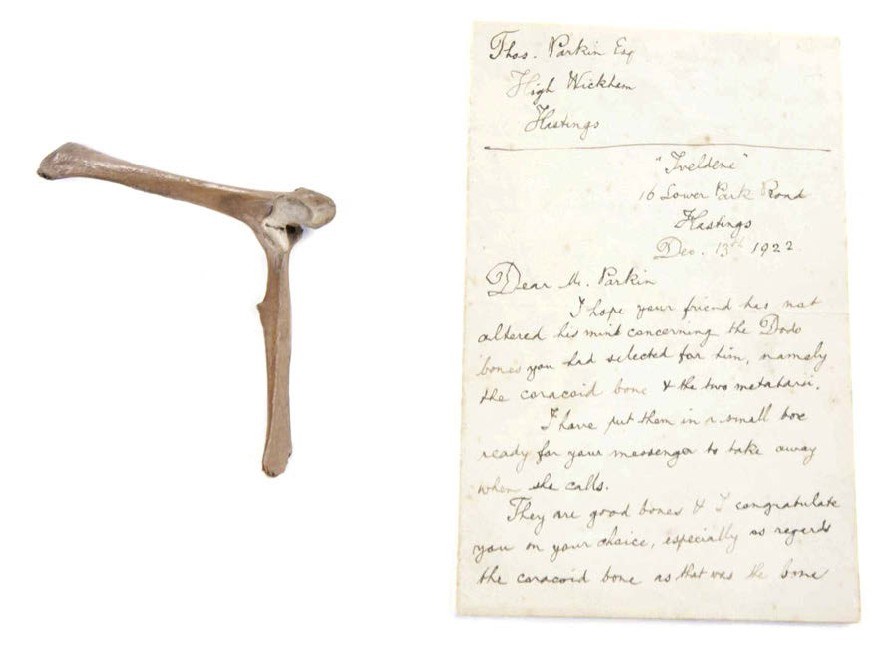 Thos. Parkin Esq
High Wickham
Hastings
"Iveldene"
16 Lower Park Road
Hastings
Dec. 13th 1922
Dear Mr. Parkin
I hope your friend has not
altered his mind concerning the Dodo
bones you had selected for him, namely
the coracoid bone & the two metatarsi.
I have put them in a small box
ready for your messenger to take away
when she calls.
They are good bones & I congratulate
you on your choice, especially as regards
the coracoid bone as that was the bone